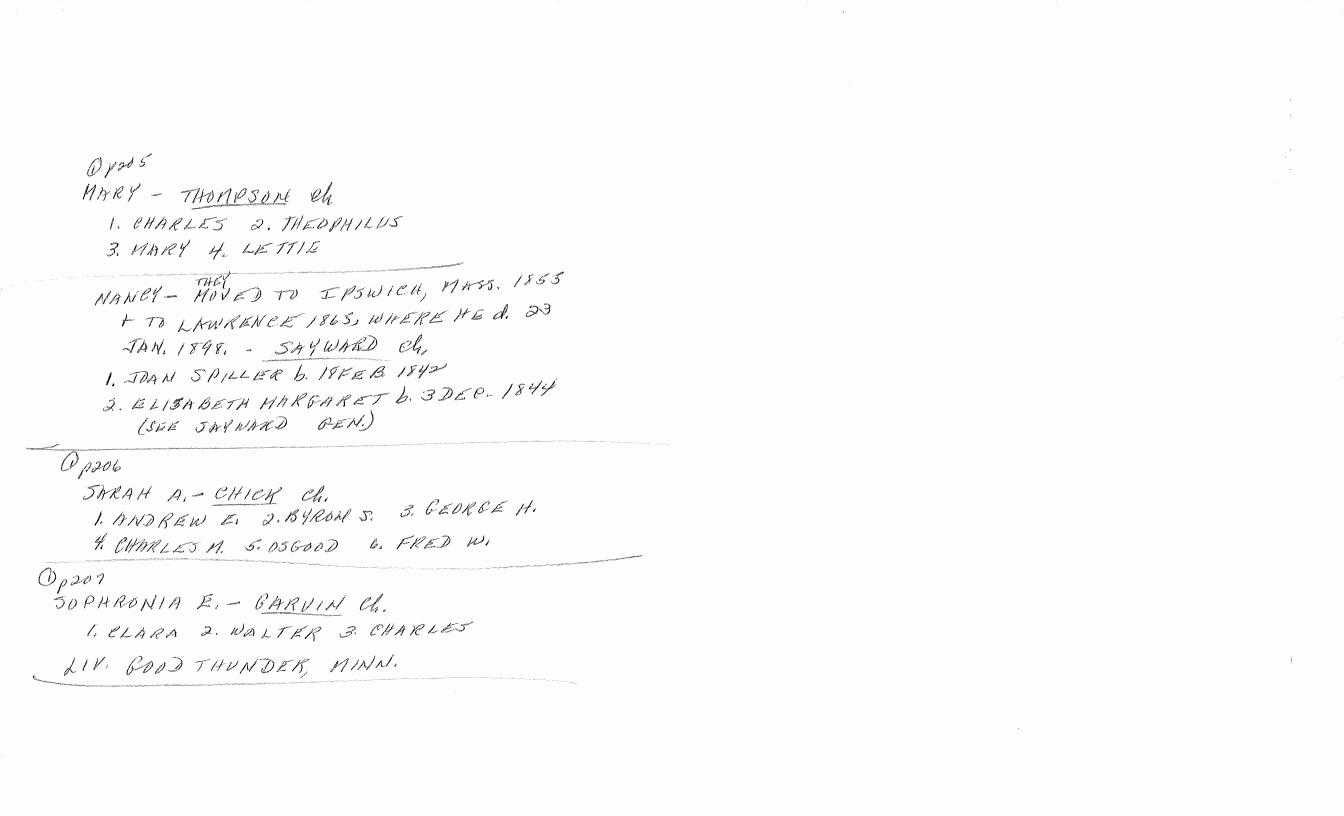 ① p205
MARY - THOMPSON Ch
1. CHARLES 2. THEOPHILUS
3. MARY 4. LETTIE
NANCY - THEY MOVED TO IPSWICH, MASS. 1855
+ TO LAWRENCE 1865, WHERE HE d. 23
JAN. 1898. - SAYWARD Ch,
1. JOAN SPILLER b. 18 FEB 1842
2. ELISABETH MARGARET b. 3 DEC. 1844
(SEE SAYWARD GEN.)
① p206
SARAH A. - CHICK Ch.
1. ANDREW E. 2. BYRON S. 3. GEORGE H.
4. CHARLES M. 5. OSGOOD 6. FRED W.
① p207
SOPHRONIA E. - GARVIN Ch.
1. CLARA 2. WALTER 3. CHARLES
LIV. GOOD THUNDER, MINN.